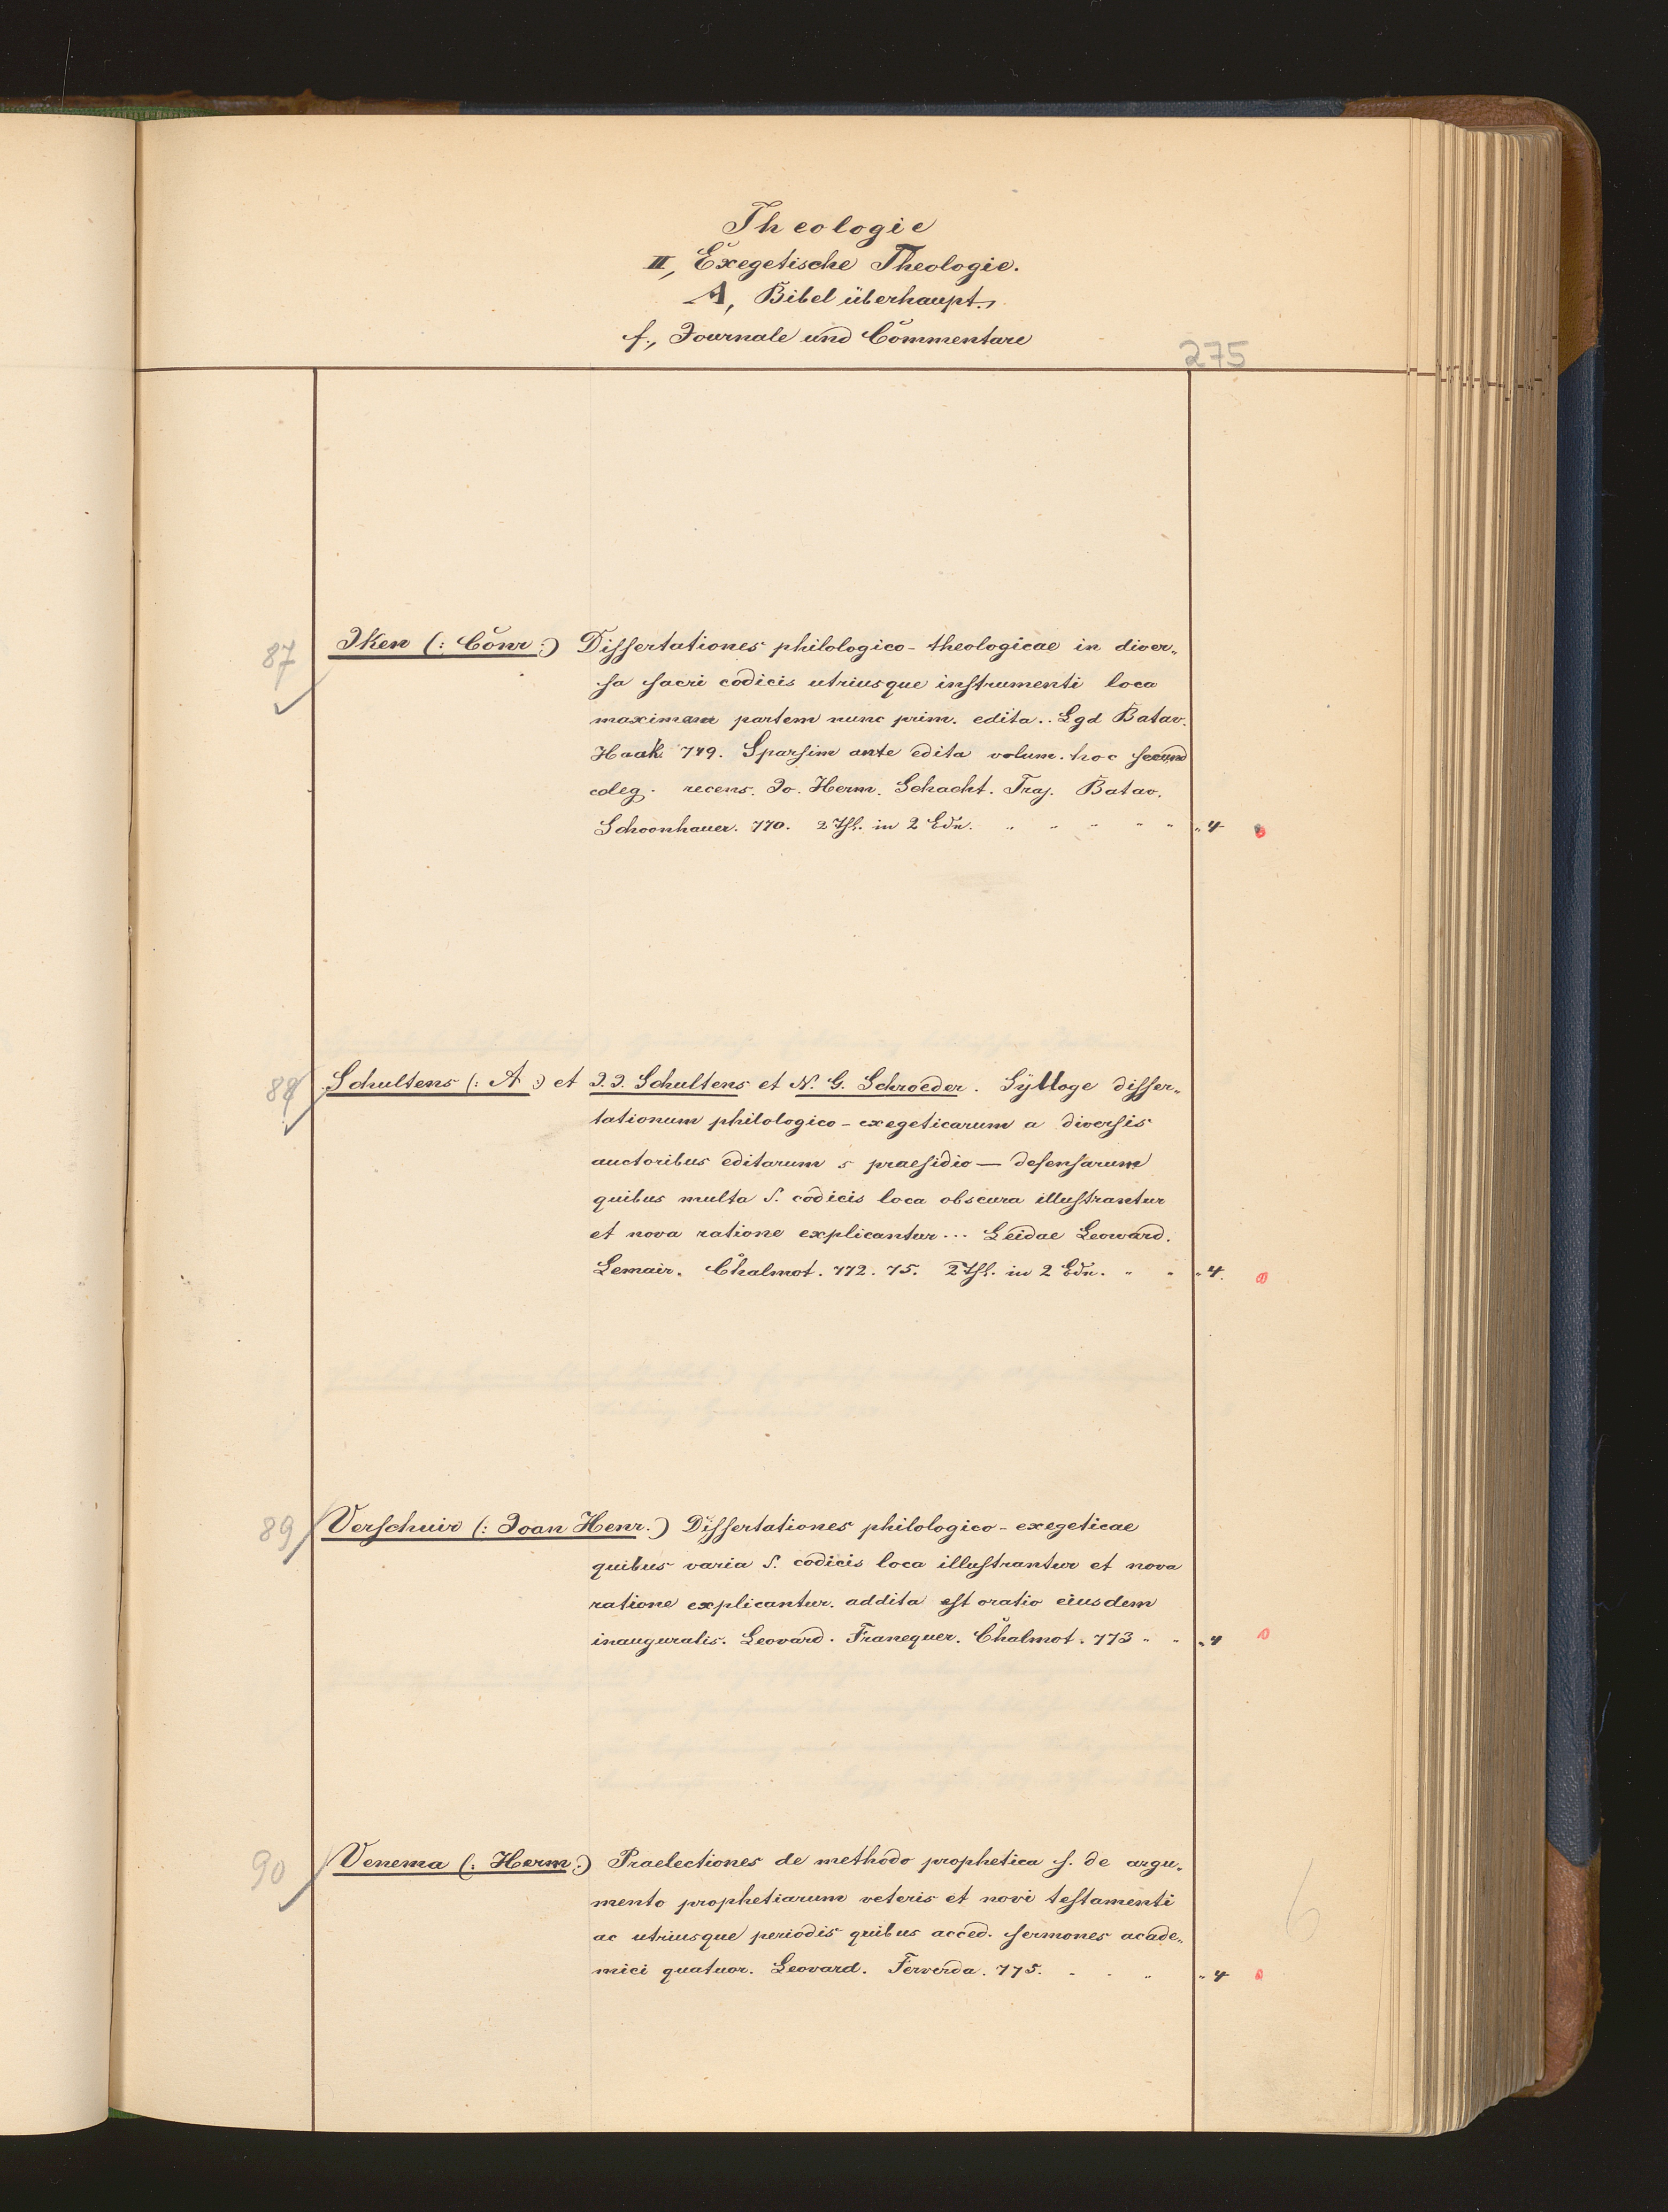 Theologie
II, Exegetische Theologie.
A, Bibel überhaupt.
f., Journale und Commentare
275
87 Iken (: Conr :) Dissertationes philologico-theologicae in diver„
sa sacri codicis utriusque instrumenti loca
maximam partem nunc prim. edita.. Lgd Batav.
Haak. 749. Sparsim ante edita volum. hoc secund
coleg. recens. Jo. Herm. Schacht. Traj. Batav.
Schoonhauer. 770. 2 Thl. in 2 Bdn. „ „ „ „ „ „ 4
88 Schultens (: A :) et J. J. Schultens et N. G. Schroeder. Sÿlloge disser„
tationum philologico-exegeticarum a diversis
auctoribus editarum s praesidio — defensarum
quibus multa S. codicis loca obscura illustrantur
et nova ratione explicantur... Leidae Leoward.
Lemair. Chalmot. 772. 75. 2 Thl. in 2 Bdn. „ „ „ 4.
89 Verschuir (: Joan Henr.) Dissertationes philologico-exegeticae
quibus varia S. codicis loca illustrantur et nova
ratione explicantur. addita est oratio eiusdem
inauguralis. Leovard. Franequer. Chalmot. 773 „ „ „ 4
90 Venema (: Herm :) Praelectiones de methodo prophetica s. de argu„
mento prophetiarum veteris et novi testamenti
ac utriusque periodis quibus acced. sermones acade„
mici quatuor. Leovard. Ferverda. 775. „ „ „ „ 4